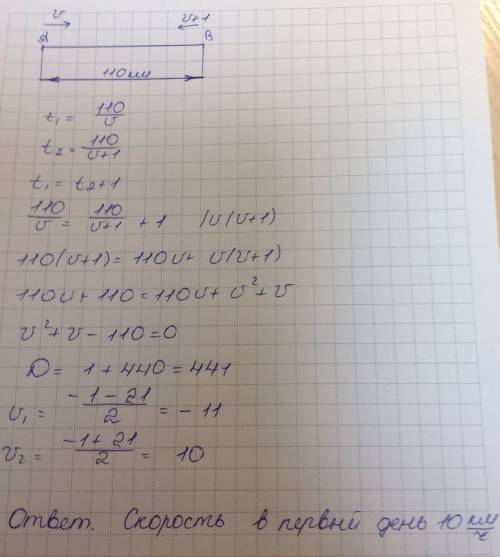 v v+1
A B
110 км
t₁ = 110/v
t₂ = 110/v+1
t₁ = t₂+1
110/v = 110/v+1 + 1 | v(v+1)
110(v+1) = 110v + v(v+1)
110v + 110 = 110v + v² + v
v² + v - 110 = 0
D = 1 + 440 = 441
v₁ = -1-21/2 = -11
v₂ = -1+21/2 = 10
Ответ. Скорость в первый день 10 км/ч